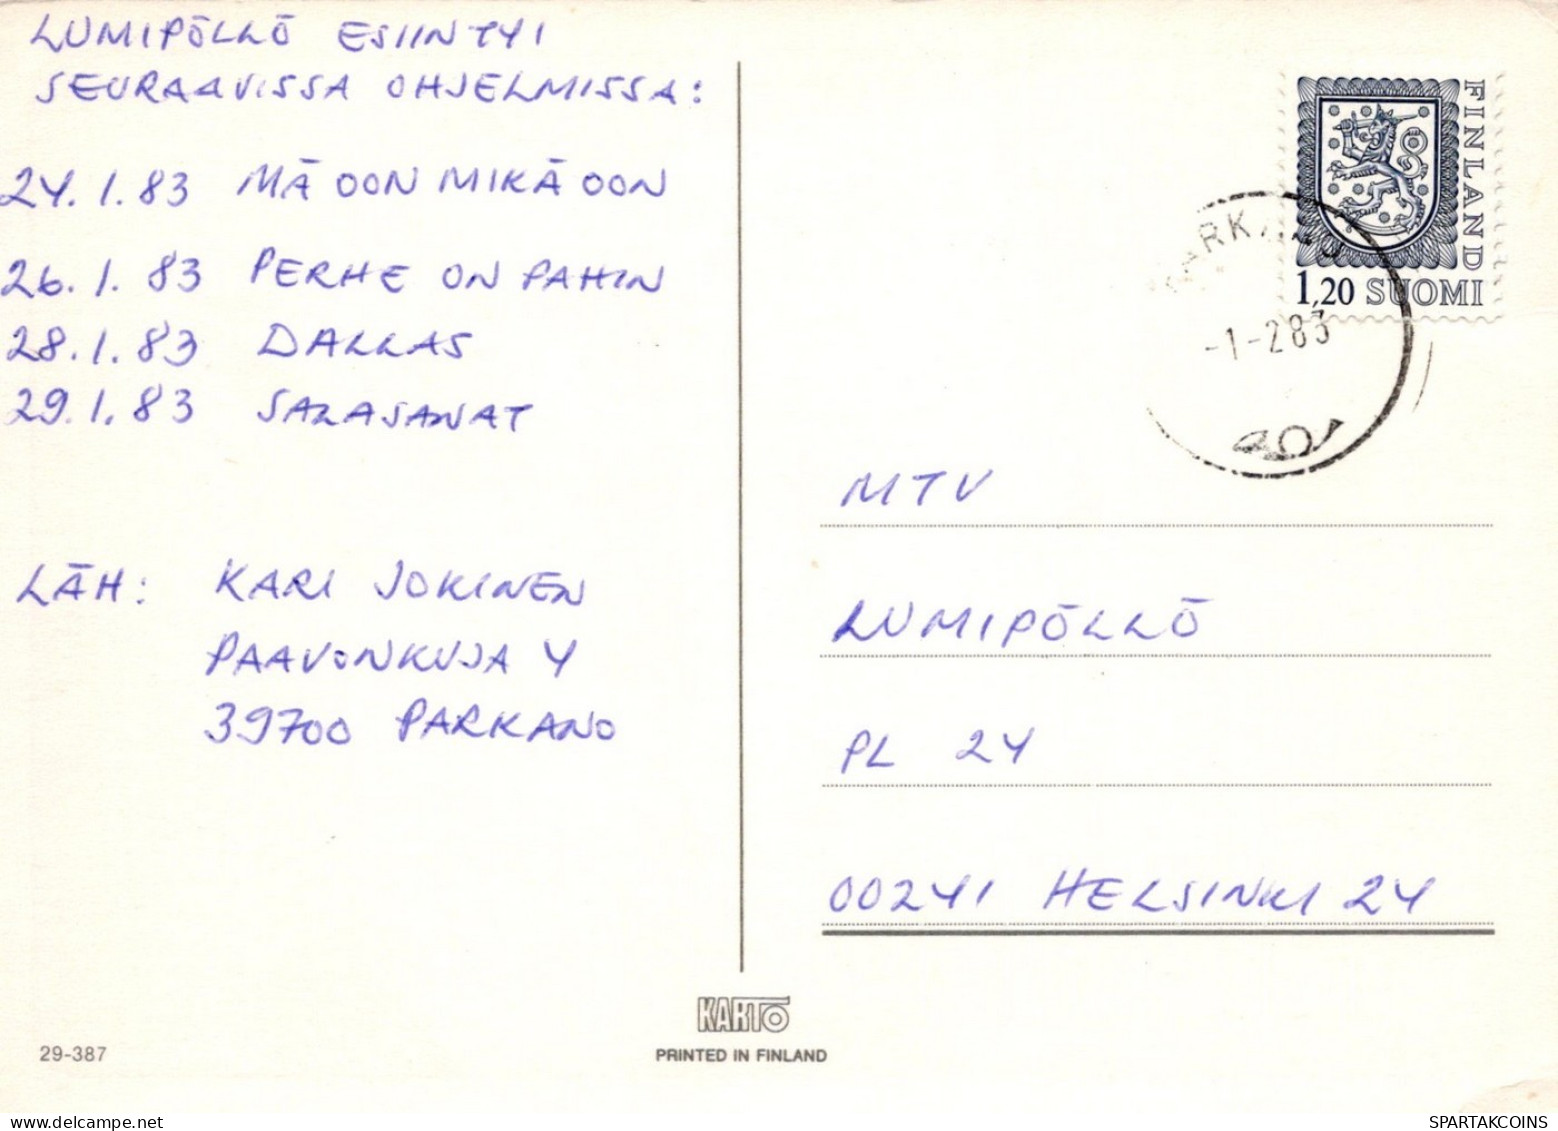 LUMIPÖLLÖ ESIINTYI
SEURAAVISSA OHJELMISSA:
24.1.83 MÄ OON MIKÄ OON
26.1.83 PERHE ON PAHIN
28.1.83 DALLAS
29.1.83 SALASANAT
LÄH: KARI JOKINEN
PAAVONKUJA 4
39700 PARKANO
FINLAND
1,20 SUOMI
PARKANO
-1-283
MTV
LUMIPÖLLÖ
PL 24
00241 HELSINKI 24
KARTO
PRINTED IN FINLAND
29-387
SPARTAKCOINS